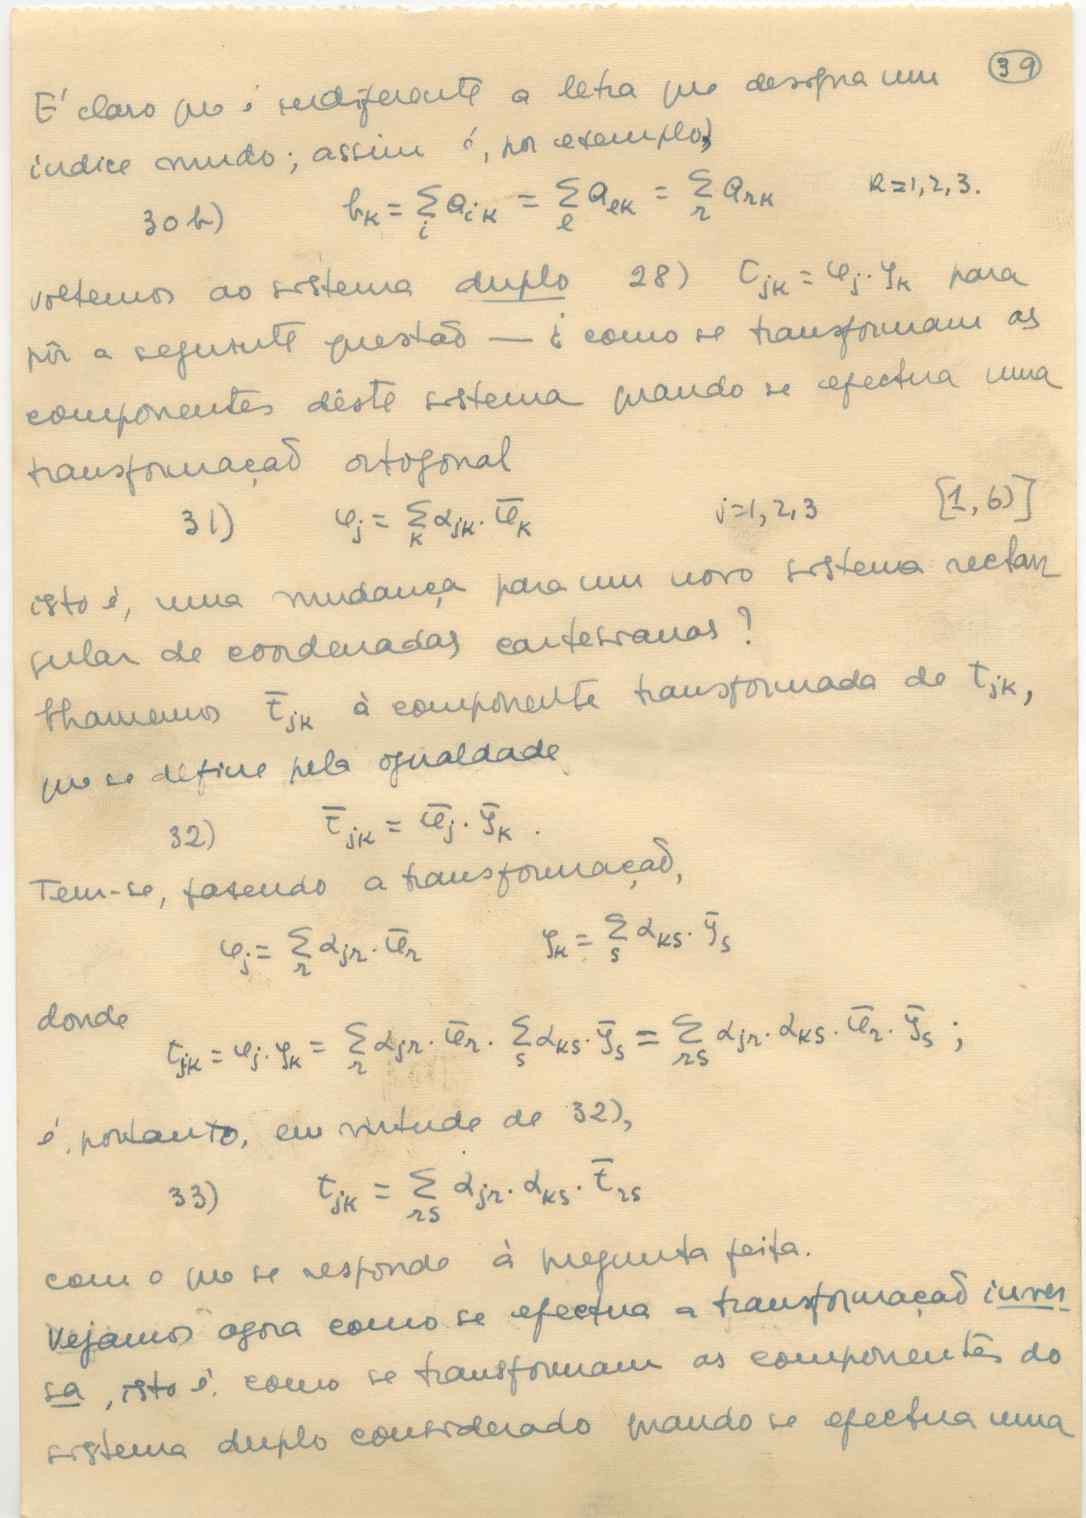 39
E' claro que é indiferente a letra que designa um
índice mudo; assim é, por exemplo,
30b) b_k = Σ_i a_ik = Σ_l a_lk = Σ_r a_rk k=1,2,3.
voltemos ao sistema duplo 28) t_jk = φ_j . ψ_k para
pôr a seguinte questão — ¿ como se transformam as
componentes dêste sistema quando se efectua uma
transformação ortogonal
31) φ_j = Σ_k α_jk . φ̄_k j=1,2,3 [1,6)]
isto é, uma mudança para um novo sistema rectan
gular de coordenadas cartesianas?
Chamemos t̄_jk à componente transformada de t_jk,
que se define pela igualdade
32) t̄_jk = φ̄_j . ψ̄_k .
Tem-se, fazendo a transformação,
φ_j = Σ_r α_jr . φ̄_r ψ_k = Σ_s α_ks . ψ̄_s
donde
t_jk = φ_j . ψ_k = Σ_r α_jr . φ̄_r . Σ_s α_ks . ψ̄_s = Σ_rs α_jr . α_ks . φ̄_r . ψ̄_s ;
é, portanto, em virtude de 32),
33) t_jk = Σ_rs α_jr . α_ks . t̄_rs
com o que se responde à pregunta feita.
Vejamos agora como se efectua a transformação inver
sa, isto é, como se transformam as componentes do
sistema duplo considerado quando se efectua uma